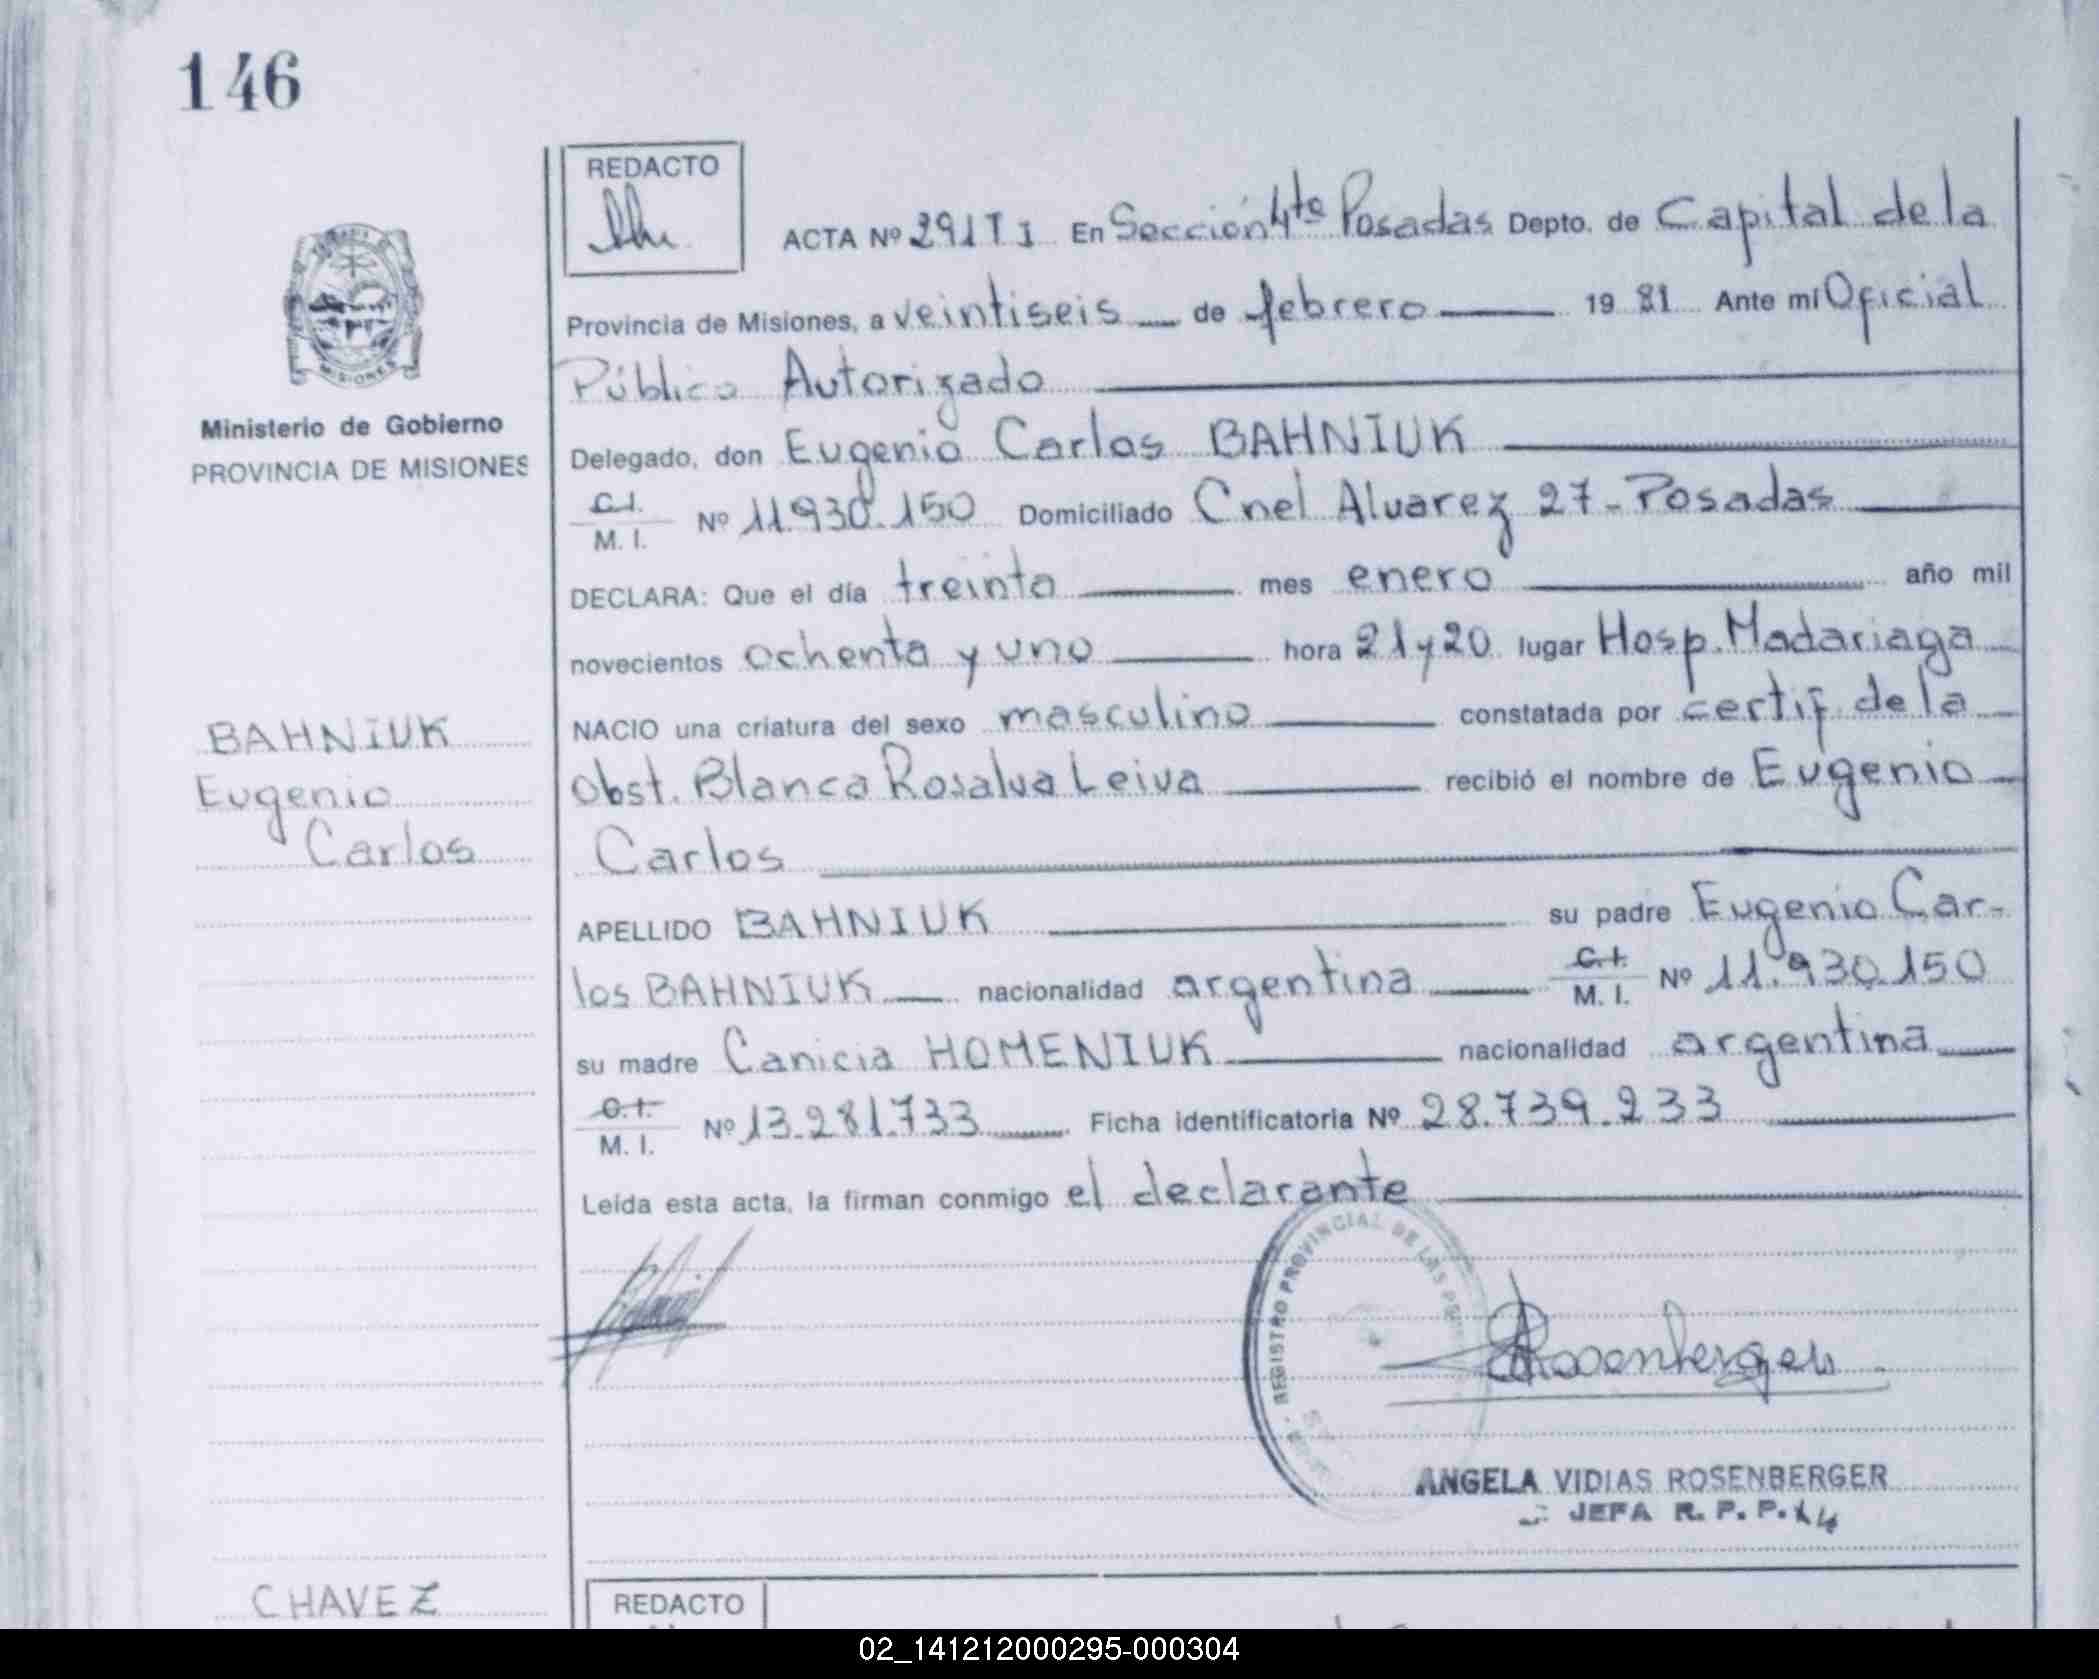 146
REDACTO
ACTA Nº 291 T I En Sección 4ta Posadas Depto. de Capital de la
Provincia de Misiones, a veintiseis de febrero 19 81 Ante mí Oficial
Público Autorizado
Ministerio de Gobierno
PROVINCIA DE MISIONES
Delegado, don Eugenio Carlos BAHNIUK
C.I.
M. I. Nº 11.930.150 Domiciliado Cnel Alvarez 27-Posadas
DECLARA: Que el día treinta mes enero año mil
novecientos ochenta y uno hora 21 y 20 lugar Hosp. Madariaga
BAHNIUK
Eugenio
Carlos
NACIO una criatura del sexo masculino constatada por certif de la
Obst. Blanca Rosalva Leiva recibió el nombre de Eugenio
Carlos
APELLIDO BAHNIUK su padre Eugenio Car-
los BAHNIUK nacionalidad argentina C.I. M. I. Nº 11.930.150
su madre Canicia HOMENIUK nacionalidad argentina
C.I.
M. I. Nº 13.281.733 Ficha identificatoria Nº 28.739.233
Leída esta acta, la firman conmigo el declarante
REGISTRO PROVINCIAL DE LAS
Rosenberger
ANGELA VIDIAS ROSENBERGER
JEFA R. P. P.
CHAVEZ
REDACTO
02_141212000295-000304